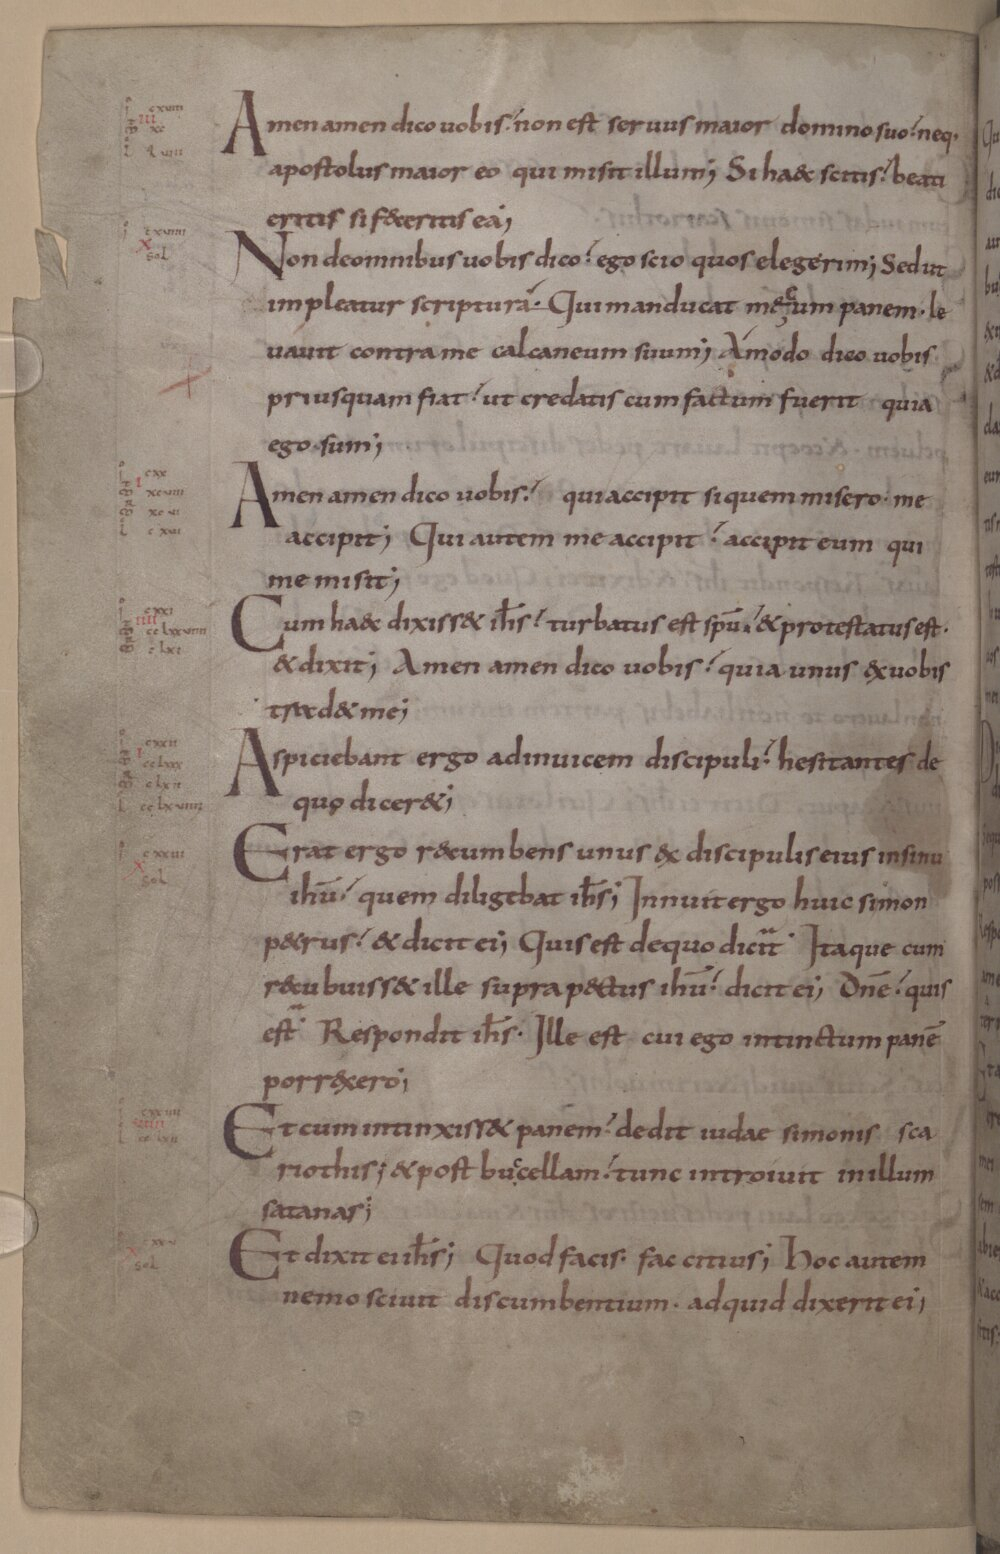 Amen amen dico uobis. non est seruus maior domino suo. neq.
apostolus maior eo qui misit illum; Si haec scitis. beati
eritis si feceritis ea;
Non de omnibus uobis dico. ego scio quos elegerim; Sed ut
impleatur scriptura. Qui manducat mecum panem. le
uauit contra me calcaneum suum; Amodo dico uobis
priusquam fiat. ut credatis cum factum fuerit quia
ego sum;
Amen amen dico uobis. qui accipit si quem misero. me
accipit; Qui autem me accipit. accipit eum qui
me misit;
Cum haec dixiss& ih̄s. turbatus est spū. & protestatus est.
& dixit; Amen amen dico uobis. quia unus ex uobis
trad& me;
Aspiciebant ergo adinuicem discipuli. hesitantes de
quo dicer&;
Erat ergo recumbens unus ex discipulis eius insinu
ihū. quem diligebat ih̄s; Innuit ergo huic simon
p&rus. & dicit ei; Quis est de quo dicit Itaque cum
recubuiss& ille supra pectus ihū. dicit ei; Dn̄e. quis
est Respondit ih̄s. Ille est cui ego intinctum panē
porrexero;
Et cum intinxiss& panem. dedit iudae simonis sca
riothis; & post buccellam. tunc introiuit in illum
satanas;
Et dixit ei ih̄s; Quod facis. fac citius; Hoc autem
nemo sciuit discumbentium. ad quid dixerit ei;